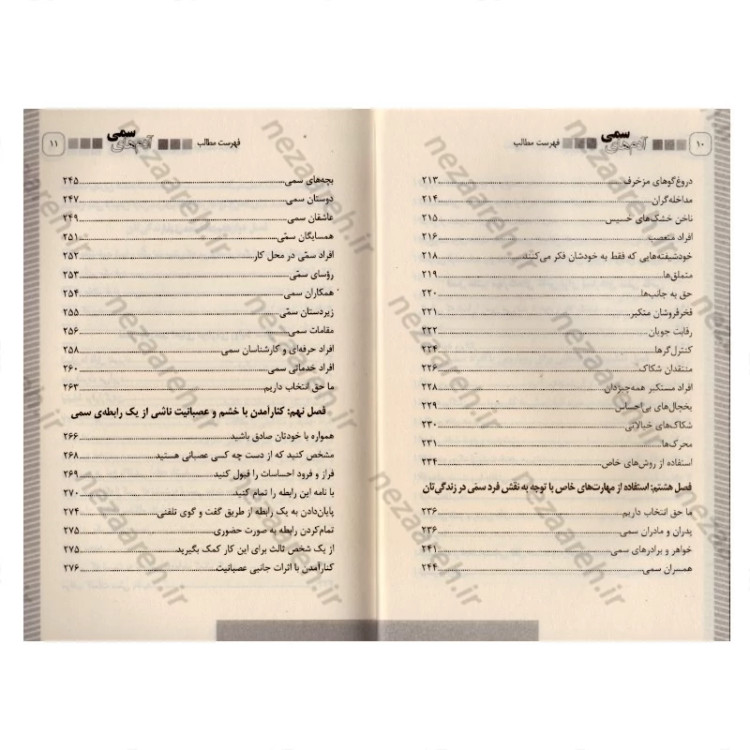 ۱۰ آدم‌های سمی فهرست مطالب
دروغ‌گوهای مزخرف ۲۱۳
مداخله‌گران ۲۱۴
ناخن خشک‌های خسیس ۲۱۵
افراد متعصب ۲۱۶
خودشیفته‌هایی که فقط به خودشان فکر می‌کنند ۲۱۸
متملق‌ها ۲۱۹
حق به جانب‌ها ۲۲۰
فخرفروشان متکبر ۲۲۱
رقابت جویان ۲۲۲
کنترل‌گرها ۲۲۴
منتقدان شکاک ۲۲۶
افراد مستکبر همه‌چیزدان ۲۲۸
یخچال‌های بی‌احساس ۲۲۹
شکاک‌های خیالاتی ۲۳۰
محرک‌ها ۲۳۱
استفاده از روش‌های خاص ۲۳۴
فصل هشتم: استفاده از مهارت‌های خاص با توجه به نقش فرد سمّی در زندگی‌تان
ما حق انتخاب داریم ۲۳۶
پدران و مادران سمی ۲۳۶
خواهر و برادرهای سمی ۲۴۱
همسران سمی ۲۴۴
فهرست مطالب آدم‌های سمی ۱۱
بچه‌های سمی ۲۴۵
دوستان سمی ۲۴۷
عاشقان سمی ۲۴۹
همسایگان سمّی ۲۵۱
افراد سمّی در محل کار ۲۵۲
رؤسای سمّی ۲۵۳
همکاران سمی ۲۵۴
زیردستان سمّی ۲۵۵
مقامات سمی ۲۵۶
افراد حرفه‌ای و کارشناسان سمی ۲۵۸
افراد خدماتی سمی ۲۶۰
ما حق انتخاب داریم ۲۶۳
فصل نهم: کنارآمدن با خشم و عصبانیت ناشی از یک رابطه‌ی سمی
همواره با خودتان صادق باشید ۲۶۶
مشخص کنید که از دست چه کسی عصبانی هستید ۲۶۸
فراز و فرود احساسات را قبول کنید ۲۶۹
با نامه این رابطه را تمام کنید ۲۷۰
پایان‌دادن به یک رابطه از طریق گفت و گوی تلفنی ۲۷۴
تمام‌کردن رابطه به صورت حضوری ۲۷۵
از یک شخص ثالث برای این کار کمک بگیرید ۲۷۵
کنارآمدن با اثرات جانبی عصبانیت ۲۷۶
nezaareh.ir